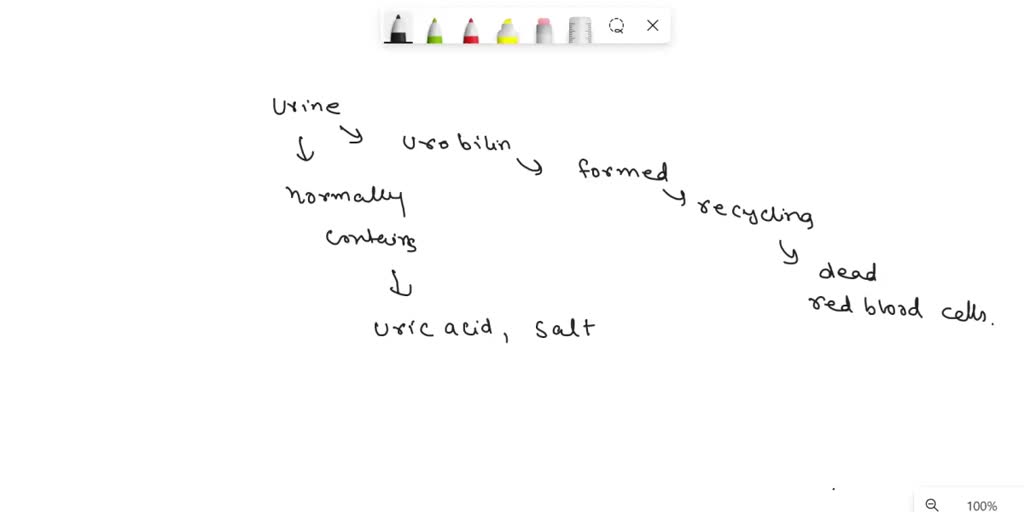 Urine
Urobilin
formed
recycling
dead
red blood cells.
normally
contains
uric acid, salt
100%